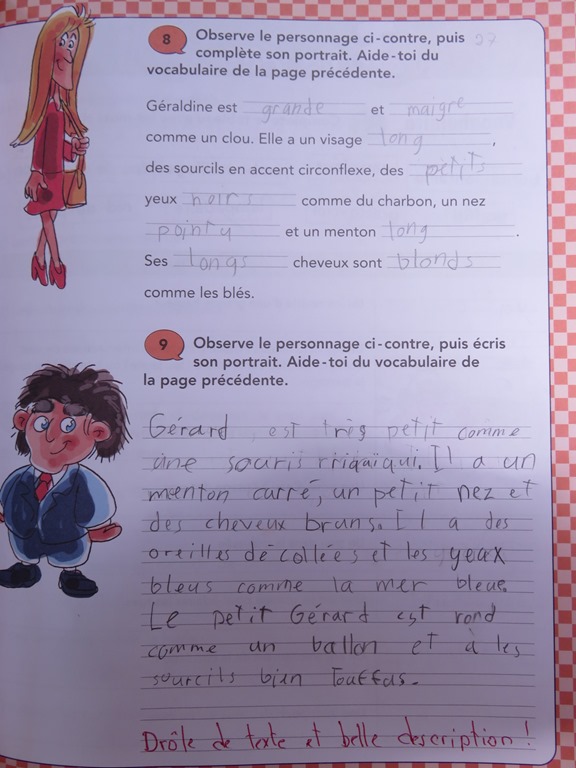 8 Observe le personnage ci-contre, puis
complète son portrait. Aide-toi du
vocabulaire de la page précédente.
Géraldine est grande et maigre
comme un clou. Elle a un visage long,
des sourcils en accent circonflexe, des petits
yeux noirs comme du charbon, un nez
pointu et un menton long.
Ses longs cheveux sont blonds
comme les blés.
9 Observe le personnage ci-contre, puis écris
son portrait. Aide-toi du vocabulaire de
la page précédente.
Gérard est très petit comme
une souris riquiqui. Il a un
menton carré, un petit nez et
des cheveux bruns. Il a des
oreilles décollées et les yeux
bleus comme la mer bleue.
Le petit Gérard est rond
comme un ballon et à les
sourcils bien Touffus.
Drôle de texte et belle description !